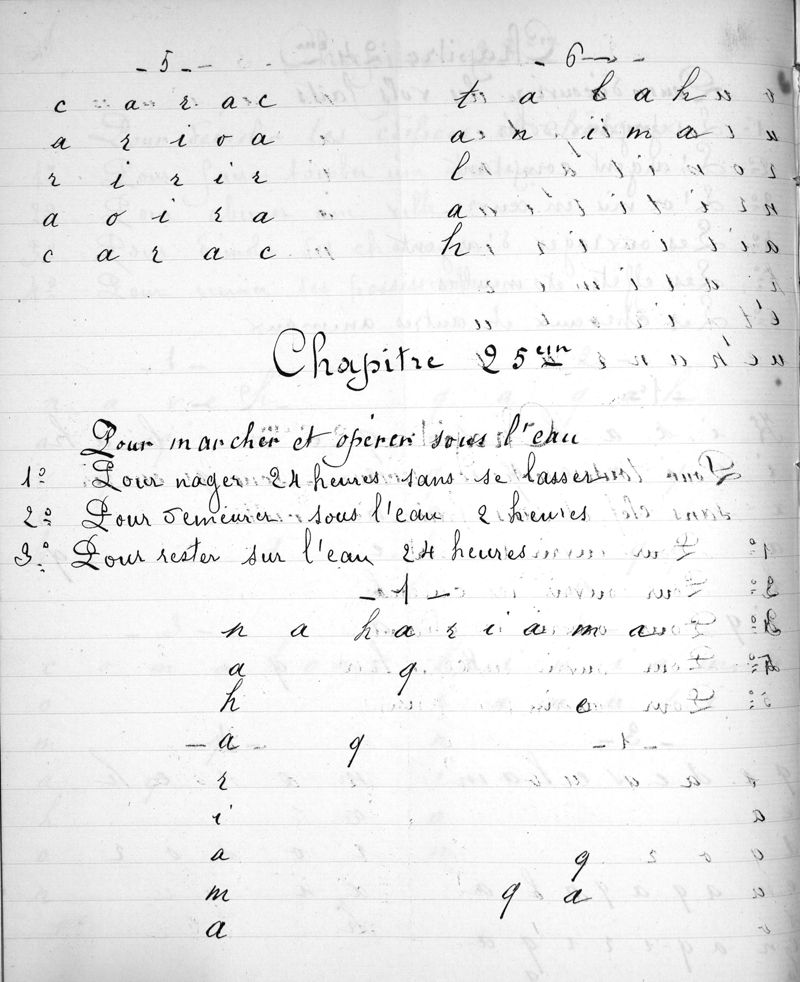 - 5 - - - 6 - -
c a r a c t a l a h
a r i o a a n i m a
r i r i r l
a o i r a a
c a r a c h
Chapitre 25em
Pour marcher et opérer sous l'eau
1º Pour nager 24 heures sans se lasser
2º Pour demeurer sous l'eau 2 heures
3º Pour rester sur l'eau 24 heures
- 1 -
n a h a r i a m a
a q
h e
a q
r
i
a q
m q a
a